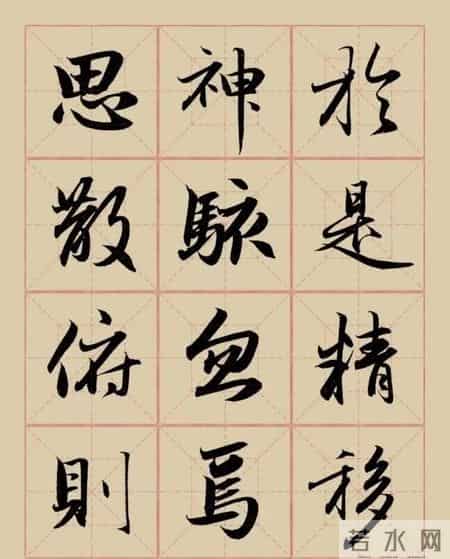 於是精移
神駭忽焉
思散俯則
若水网